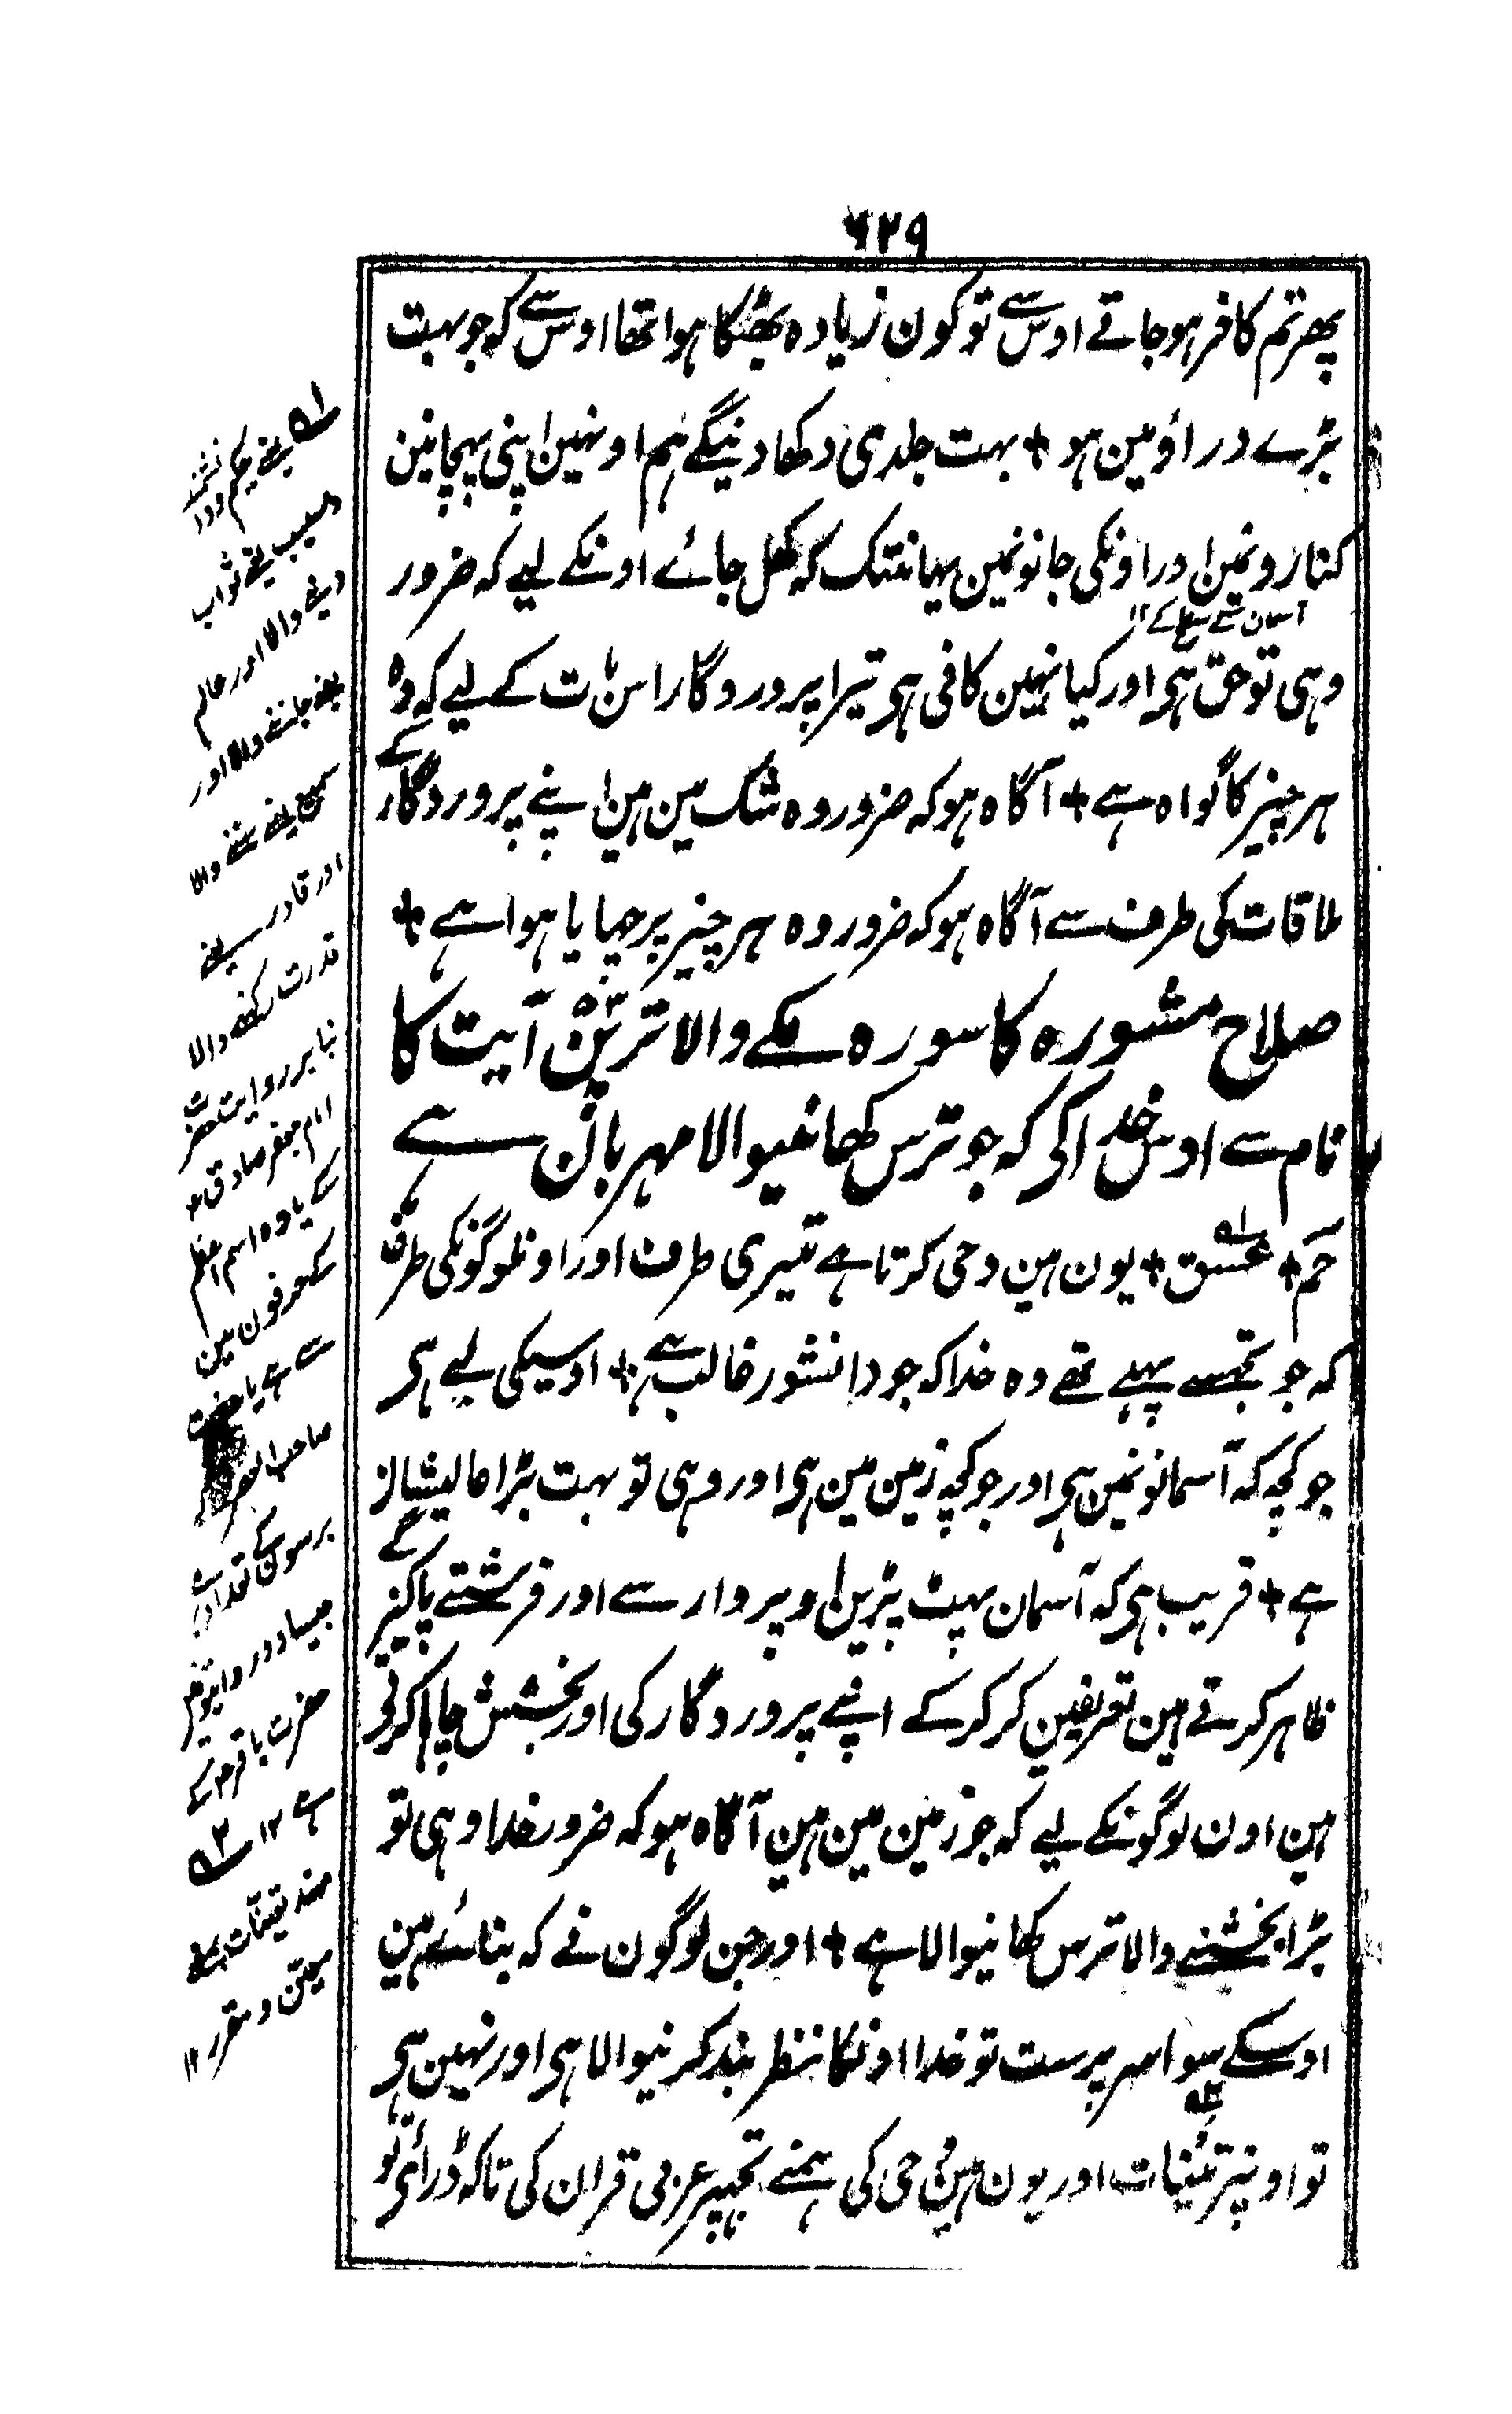 ۶۲۹
پھر تم کافر ہو جاتے اوس سے تو کون زیادہ بھٹکا ہوا تھا اوس سے کہ جو بہت
بڑے دراؤ مین ہو + بہت جلدی دکھا دینگے ہم اونہین اپنی پہچانین
کنارونمین اور اونکی جانونمین یہانتک کہ کھل جائے اونکے لیے کہ ضرور
وہی تو حق ہی اور کیا نہین کافی ہی تیرا پروردگار اس بات کے لیے کہ وہ
ہر چیز کا گواہ ہے + آگاہ ہو کہ ضرور وہ شک مین ہین اپنے پروردگار کے
ملاقات کی طرف سے آگاہ ہو کہ ضرور وہ ہر چیز پر چھایا ہوا ہے +
صلاح مشورہ کا سورہ مکے والا ترپن ۵۳ آیت کا
نام سے اوس خدا کی کہ جو ترس کھانیوالا مہربان ہے
حٓم + عٓسق + یون ہین وحی کرتا ہے تیری طرف اور اونلوگونکی طرف
کہ جو تجھسے پہلے تھے وہ خدا کہ جو دانشور غالب ہے + اوسیکی لیے ہی
جو کچھ کہ آسمانونمین ہی اور جو کچھ زمین مین ہی اور وہی تو بہت بڑا عالیشان
ہے + قریب ہی کہ آسمان پھٹ پڑین اوپر وار سے اور فرشتے پاکیزگے
ظاہر کرتے ہین تعریفین کر کر کے اپنے پروردگار کی اور بخشش چاہا کرتی
ہین اون لوگونکے لیے کہ جو زمین مین ہین آگاہ ہو کہ ضرور خدا وہی تو
بڑا بخشنے والا ترس کھانیوالا ہے + اور جن لوگون نے کہ بنائے ہین
اوسکے سوا سرپرست تو خدا اونکا نظر بند کرنیوالا ہی اور نہین ہی
تو اونپر تئینات اور یون ہین وحی کی ہمنے تجھپر عربی قران کی تاکہ ڈرائی تو
۱ یعنے حکیم دانشمند
یعنے ثواب
دینے والا اور عالم
یعنے جاننے والا اور
سمیع یعنے سننے والا
اور قادر یعنے
قدرت رکھنے والا
بنابر روایت حضرت
امام جعفر صادق ع
کے یا وہ اسم اعظم
کے حرفون مین
سے ہے یا حضرت
صاحب العصر
برسون کے تعداد ہے
جیسا دو روایتونمین
حضرت باقر ع کے
ہے ۱۲ ۲
یعنے
معین و مقرر ۱۲